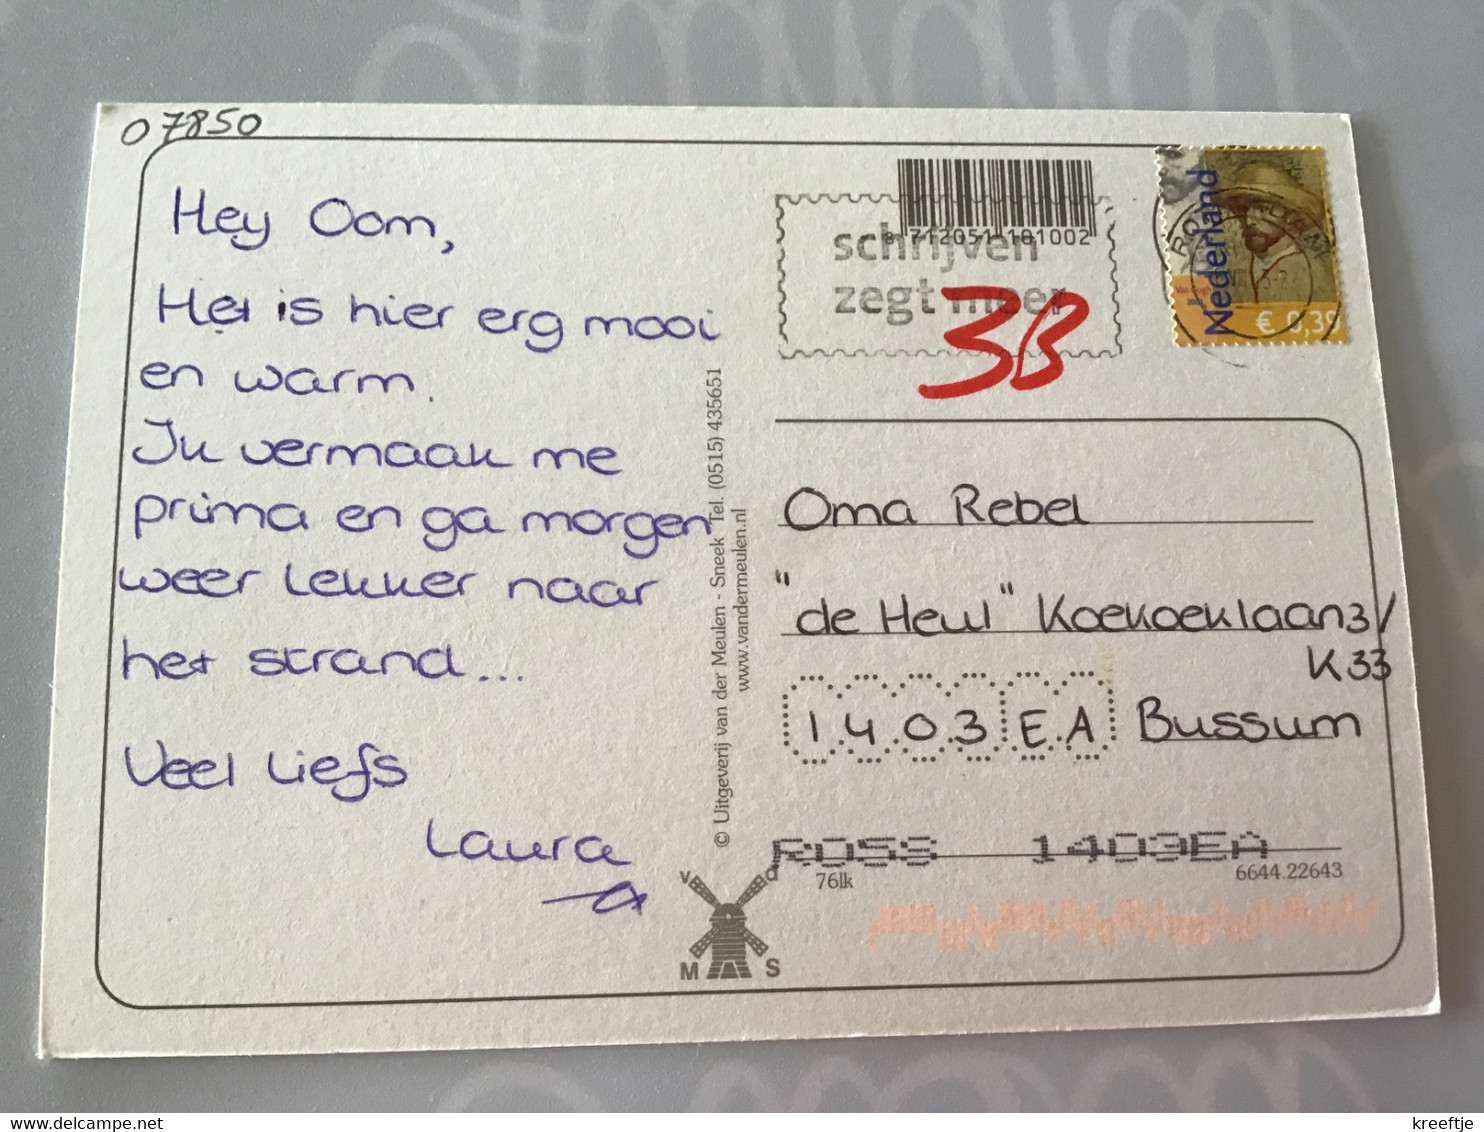 07850
Hey Oom,
Het is hier erg mooi
en warm.
Ik vermaak me
prima en ga morgen
weer lekker naar
het strand...
Veel Liefs
Laura
© Uitgeverij van der Meulen - Sneek Tel. (0515) 435651
www.vandermeulen.nl
8 712051 181002
schrijven
zegt meer
3B
Nederland
€ 0,39
Oma Rebel
"de Heul" Koekoeklaan 3/
K33
1403 EA Bussum
ROSS 1403EA
76lk
6644.22643
v d
M S
kreeftje